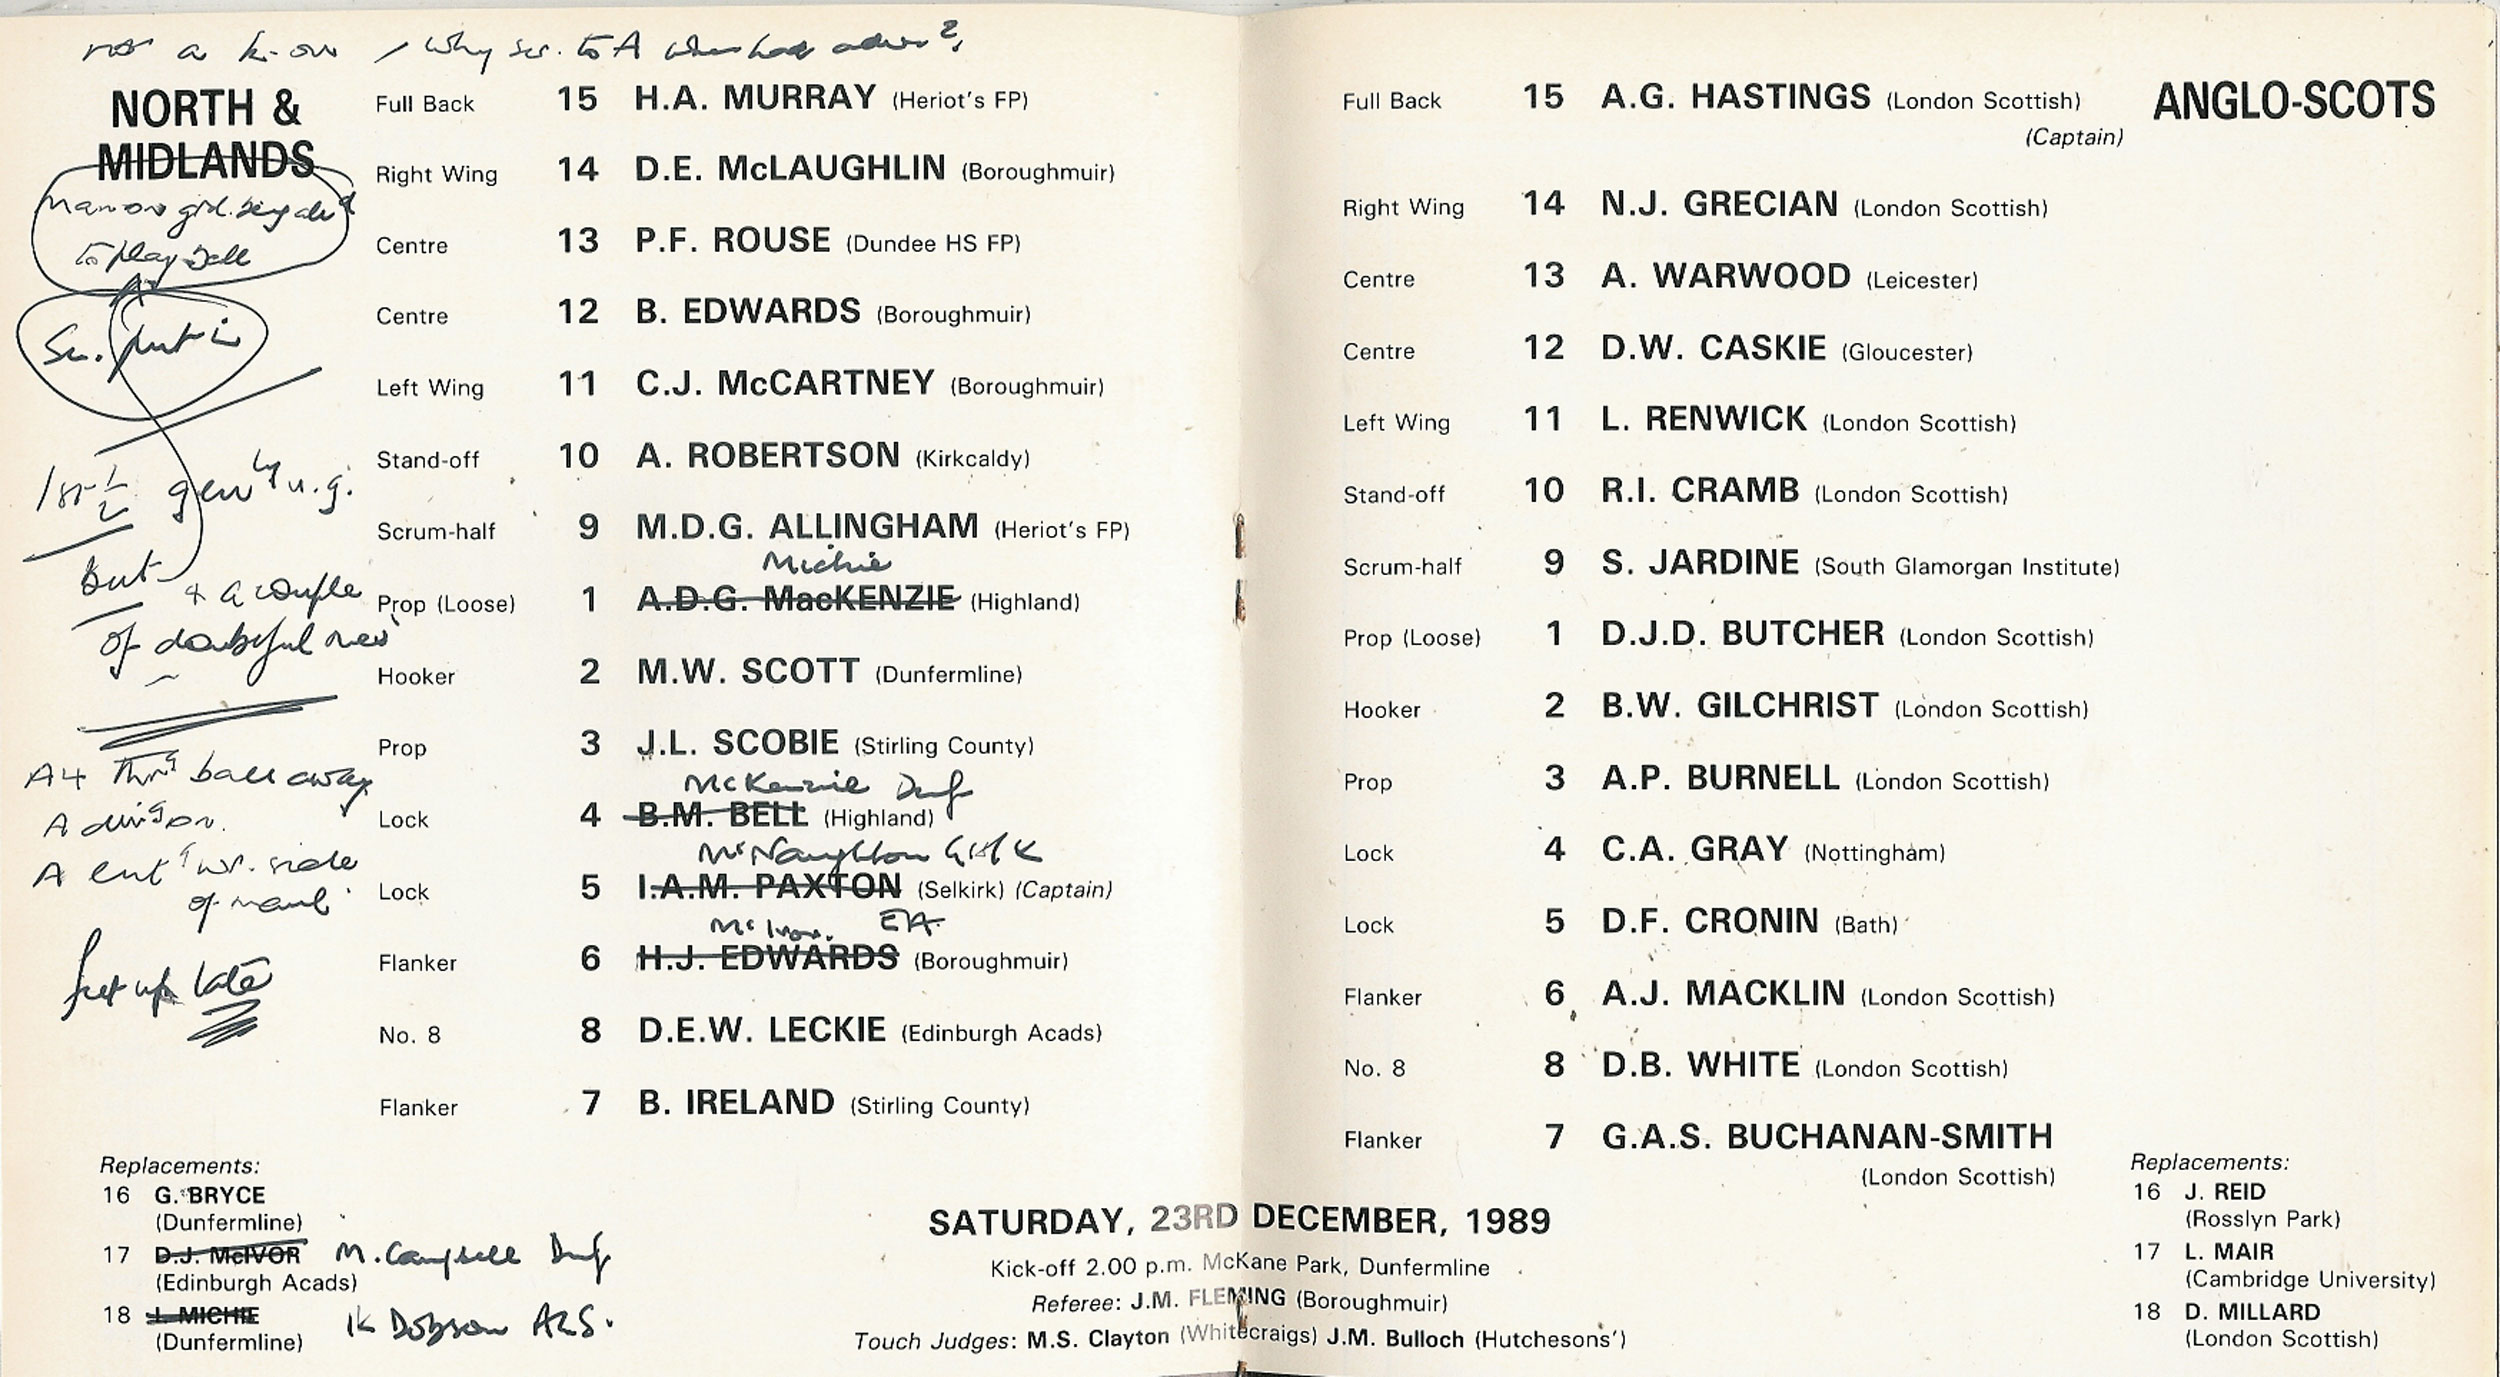 not a k-on / why scr. to A when had adv?
NORTH &
MIDLANDS
man on grd. being all'd
to play ball
Sc. put in
1st ½ gen'ly v.g.
but + a couple
of doubtful ones
A4 thr'g ball away
A div'g on.
A ent'g wr. side
of maul
feet up late
Full Back 15 H.A. MURRAY (Heriot's FP)
Right Wing 14 D.E. McLAUGHLIN (Boroughmuir)
Centre 13 P.F. ROUSE (Dundee HS FP)
Centre 12 B. EDWARDS (Boroughmuir)
Left Wing 11 C.J. McCARTNEY (Boroughmuir)
Stand-off 10 A. ROBERTSON (Kirkcaldy)
Scrum-half 9 M.D.G. ALLINGHAM (Heriot's FP)
Michie
Prop (Loose) 1 A.D.G. MacKENZIE (Highland)
Hooker 2 M.W. SCOTT (Dunfermline)
Prop 3 J.L. SCOBIE (Stirling County)
McKenzie Dunf
Lock 4 B.M. BELL (Highland)
McNaughton GH/K
Lock 5 I.A.M. PAXTON (Selkirk) (Captain)
McIvor. EA.
Flanker 6 H.J. EDWARDS (Boroughmuir)
No. 8 8 D.E.W. LECKIE (Edinburgh Acads)
Flanker 7 B. IRELAND (Stirling County)
Replacements:
16 G. BRYCE
(Dunfermline)
17 D.J. McIVOR M. Campbell Dunf
(Edinburgh Acads)
18 L. MICHIE K Dobson A&S.
(Dunfermline)
ANGLO-SCOTS
Full Back 15 A.G. HASTINGS (London Scottish)
(Captain)
Right Wing 14 N.J. GRECIAN (London Scottish)
Centre 13 A. WARWOOD (Leicester)
Centre 12 D.W. CASKIE (Gloucester)
Left Wing 11 L. RENWICK (London Scottish)
Stand-off 10 R.I. CRAMB (London Scottish)
Scrum-half 9 S. JARDINE (South Glamorgan Institute)
Prop (Loose) 1 D.J.D. BUTCHER (London Scottish)
Hooker 2 B.W. GILCHRIST (London Scottish)
Prop 3 A.P. BURNELL (London Scottish)
Lock 4 C.A. GRAY (Nottingham)
Lock 5 D.F. CRONIN (Bath)
Flanker 6 A.J. MACKLIN (London Scottish)
No. 8 8 D.B. WHITE (London Scottish)
Flanker 7 G.A.S. BUCHANAN-SMITH
(London Scottish)
Replacements:
16 J. REID
(Rosslyn Park)
17 L. MAIR
(Cambridge University)
18 D. MILLARD
(London Scottish)
SATURDAY, 23RD DECEMBER, 1989
Kick-off 2.00 p.m. McKane Park, Dunfermline
Referee: J.M. FLEMING (Boroughmuir)
Touch Judges: M.S. Clayton (Whitecraigs) J.M. Bulloch (Hutchesons')